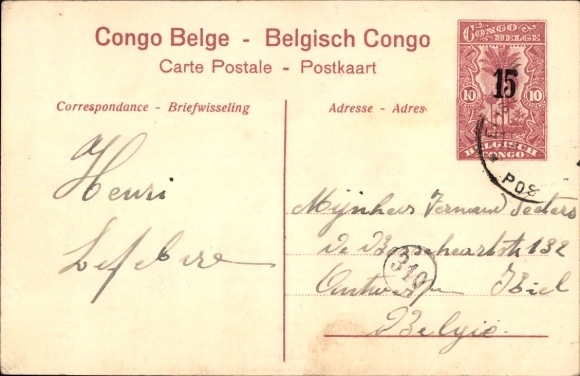 Congo Belge - Belgisch Congo
Carte Postale - Postkaart
Correspondance - Briefwisseling
Adresse - Adres
CONGO BELGE
15
10 10
BELGISCH CONGO
POS
Henri
Lefebvre
Mijnheer Fernand Seeters
De Bosschaertstr 132
310
Antwerpen Kiel
Belgie.